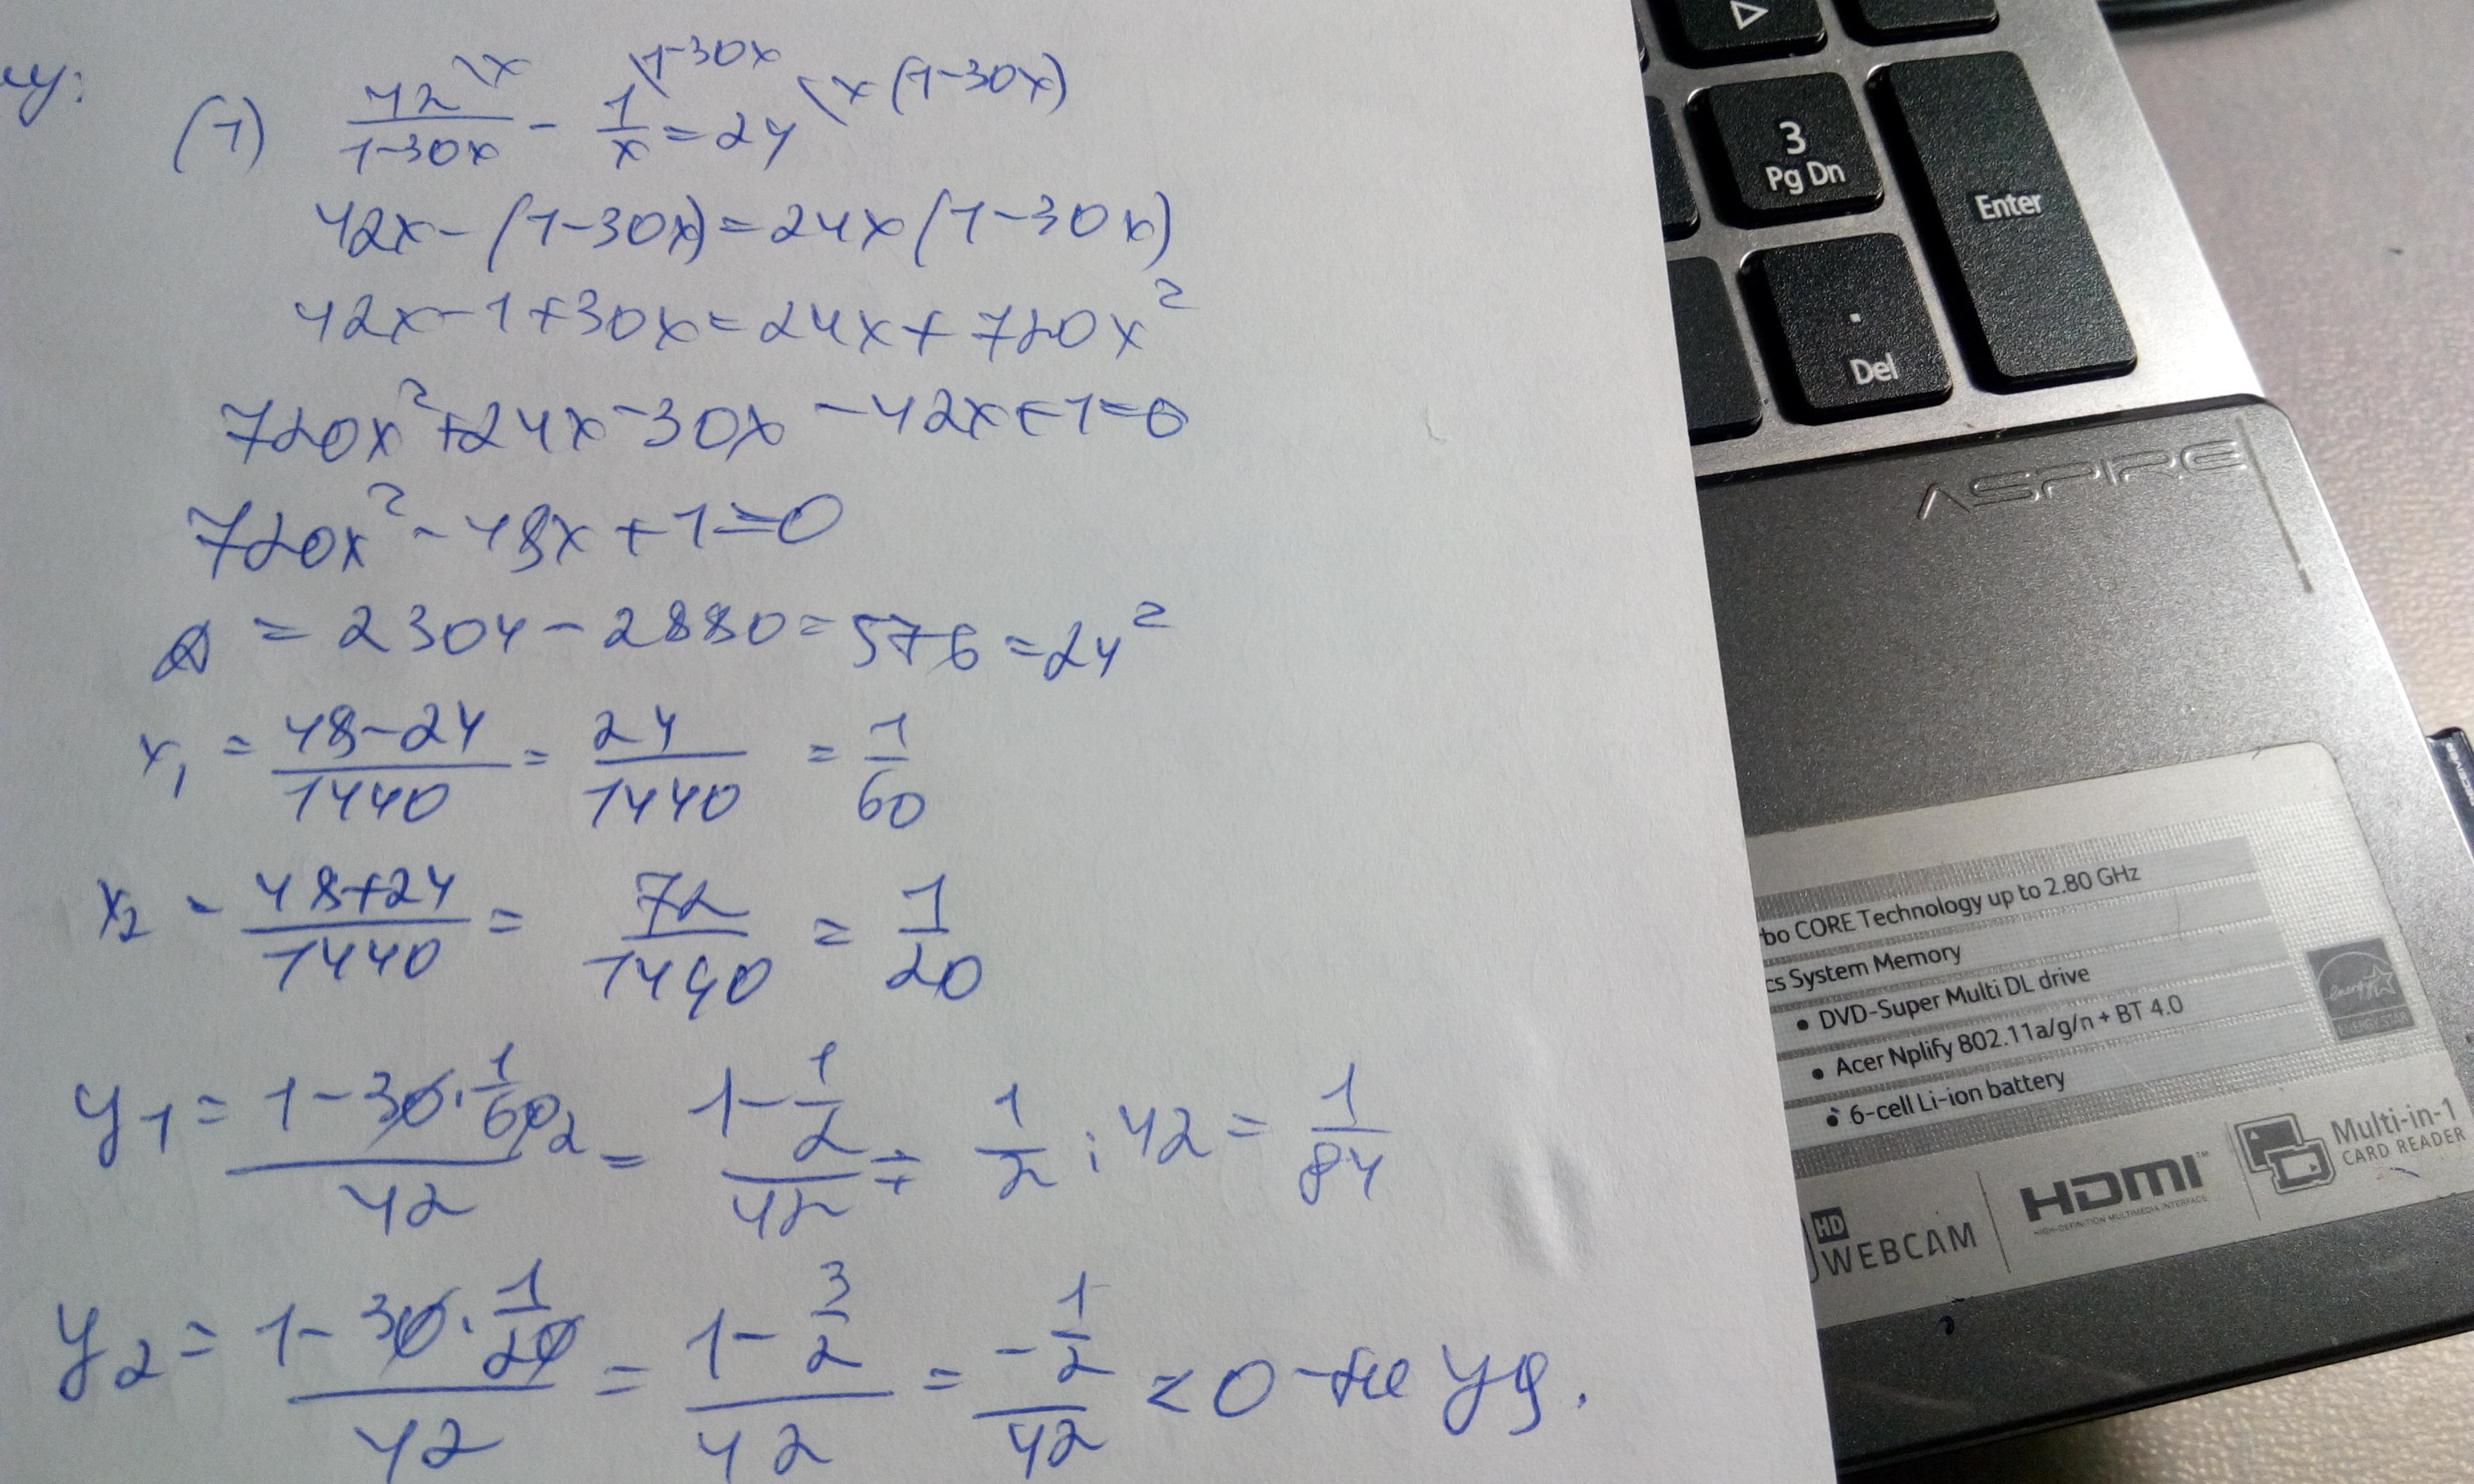 (1) 42/(1-30x) \x - 1/x \1-30x = 24 \x(1-30x)
42x-(1-30x)=24x(1-30x)
42x-1+30x=24x+720x²
720x²+24x-30x-42x+1=0
720x²-48x+1=0
D = 2304-2880=576=24²
x₁ = (48-24)/1440 = 24/1440 = 1/60
x₂ - (48+24)/1440 = 72/1440 = 1/20
y₁ = (1-30·1/60 2)/42 = (1-1/2)/42 = 1/2 : 42 = 1/84
y₂ = (1-30·1/20)/42 = (1-3/2)/42 = (-1/2)/42 < 0 - не уд.
3
Pg Dn
Enter
.
Del
ASPIRE
CORE Technology up to 2.80 GHz
System Memory
• DVD-Super Multi DL drive
• Acer Nplify 802.11a/g/n + BT 4.0
• 6-cell Li-ion battery
energy
ENERGY STAR
HD
WEBCAM
HDMI™
HIGH-DEFINITION MULTIMEDIA INTERFACE
Multi-in-1
CARD READER